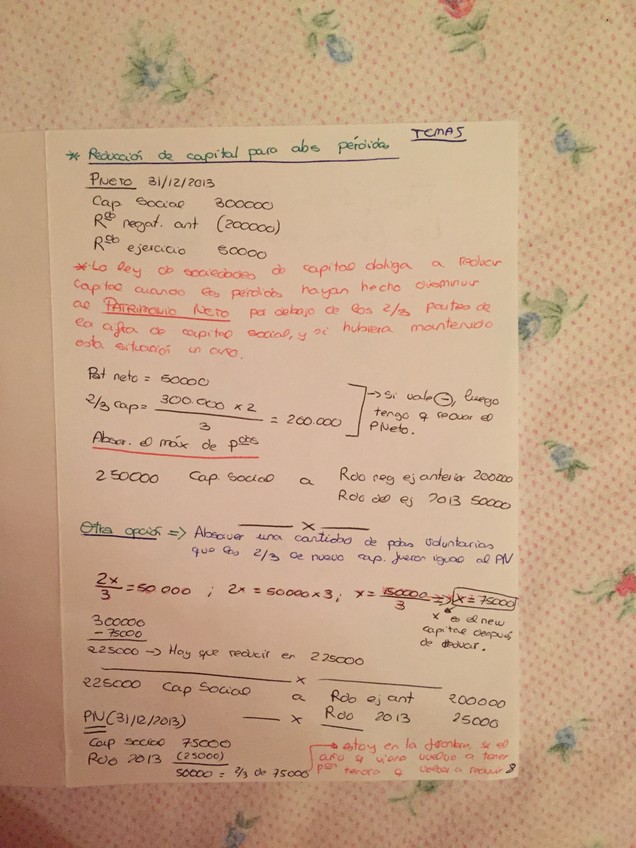 TEMA5
* Reducción de capital para abs pérdidas
PNeto 31/12/2013
Cap Social 300000
Rdo negat. ant (200000)
Rdo ejercicio 50000
* La ley de sociedades de capital obliga a reducir
capital cuando las pérdidas hayan hecho disminuir
al PATRIMONIO NETO por debajo de las 2/3 partes de
la cifra de capital social, y si hubiera mantenido
esta situación un año.
Pat neto = 50000
2/3 cap = 300.000 x 2 / 3 = 200.000
-> si vale ⊖, luego
tengo q reducir el
PNeto.
Absor. el máx de pdas
250000 Cap. Social a Rdo neg ej anterior 200000
Rdo del ej 2013 50000
x
Otra opción => Absorver una cantidad de pdas voluntarias
que los 2/3 de nuevo cap. fueran igual al PN
2x/3 = 50000 ; 2x = 50000 x 3 ; x = 150000/3 => x = 75000
x es el new
capital después
de reducir.
300000
- 75000
225000 -> Hay que reducir en 225000
x
225000 Cap Social a Rdo ej ant 200000
Rdo 2013 25000
x
PN (31/12/2013)
Cap social 75000
Rdo 2013 (25000)
50000 = 2/3 de 75000
-> estoy en la frontera, si el
año q viene vuelvo a tener
pdas tendré q volver a reducir
8